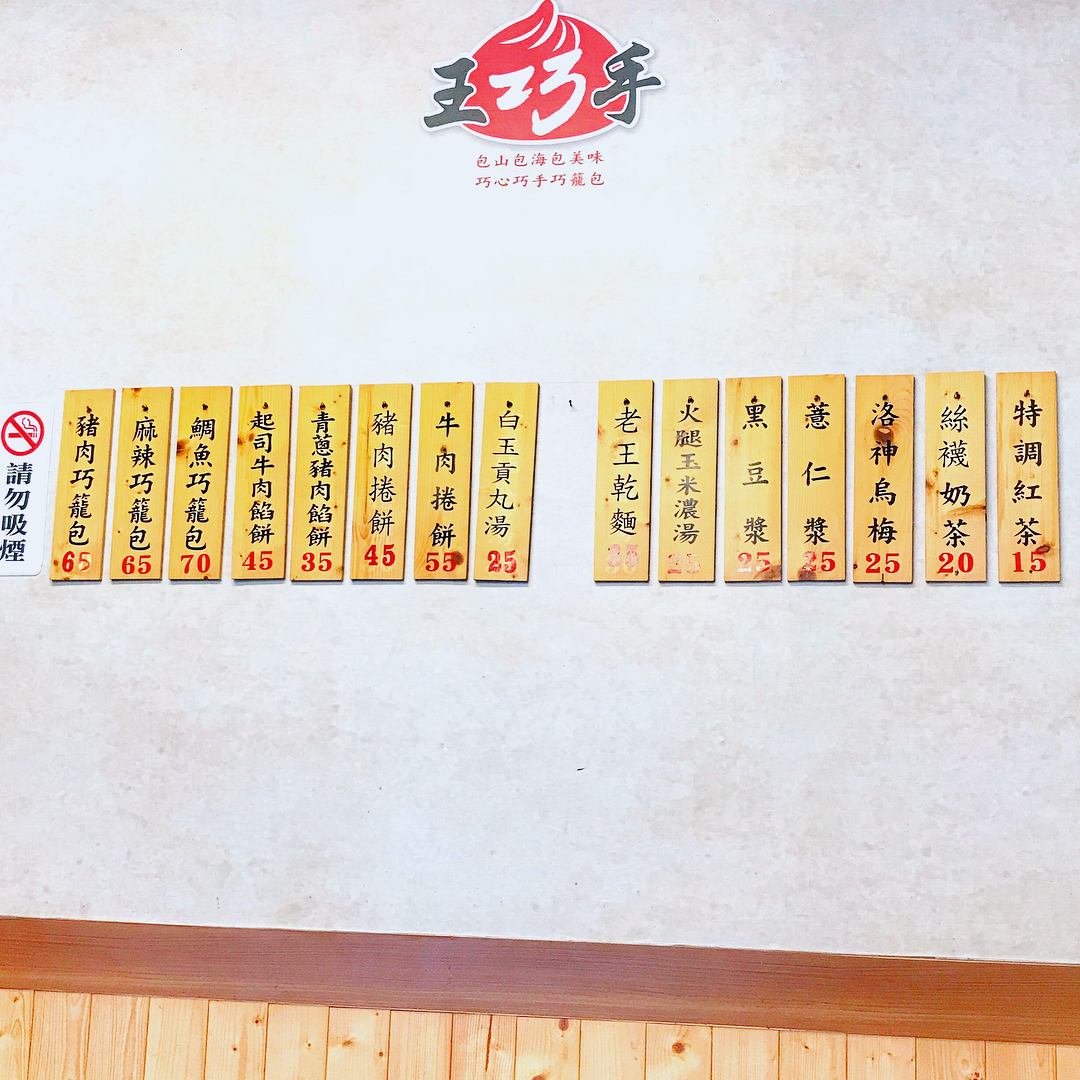 王巧手
包山包海包美味
巧心巧手巧籠包
請勿吸煙
豬肉巧籠包 65
麻辣巧籠包 65
鯛魚巧籠包 70
起司牛肉餡餅 45
青蔥豬肉餡餅 35
豬肉捲餅 45
牛肉捲餅 55
白玉貢丸湯 25
老王乾麵
火腿玉米濃湯 25
黑豆漿 25
薏仁漿 25
洛神烏梅 25
絲襪奶茶 20
特調紅茶 15